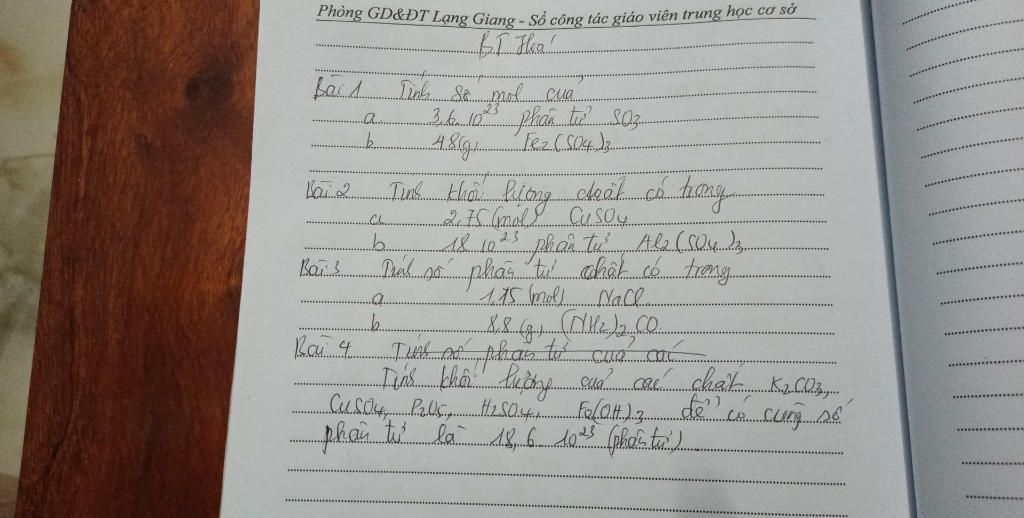 Phòng GD&ĐT Lạng Giang - Sổ công tác giáo viên trung học cơ sở
BT Hoá
Bài 1 Tính số mol của
a 3,6.10²³ phân tử SO₃
b 48(g) Fe₂(SO₄)₃
Bài 2 Tính khối lượng chất có trong
a 2,75(mol) CuSO₄
b 18 10²³ phân tử Al₂(SO₄)₃
Bài 3 Tính số phân tử chất có trong
a 1,75(mol) NaCl
b 8,8 (g) (NH₂)₂CO
Bài 4 Tính số phân tử của các
Tính khối lượng của các chất K₂CO₃,
CuSO₄, P₂O₅, H₂SO₄, Fe(OH)₃ để có cùng số
phân tử là 18,6 10²³ (phân tử)